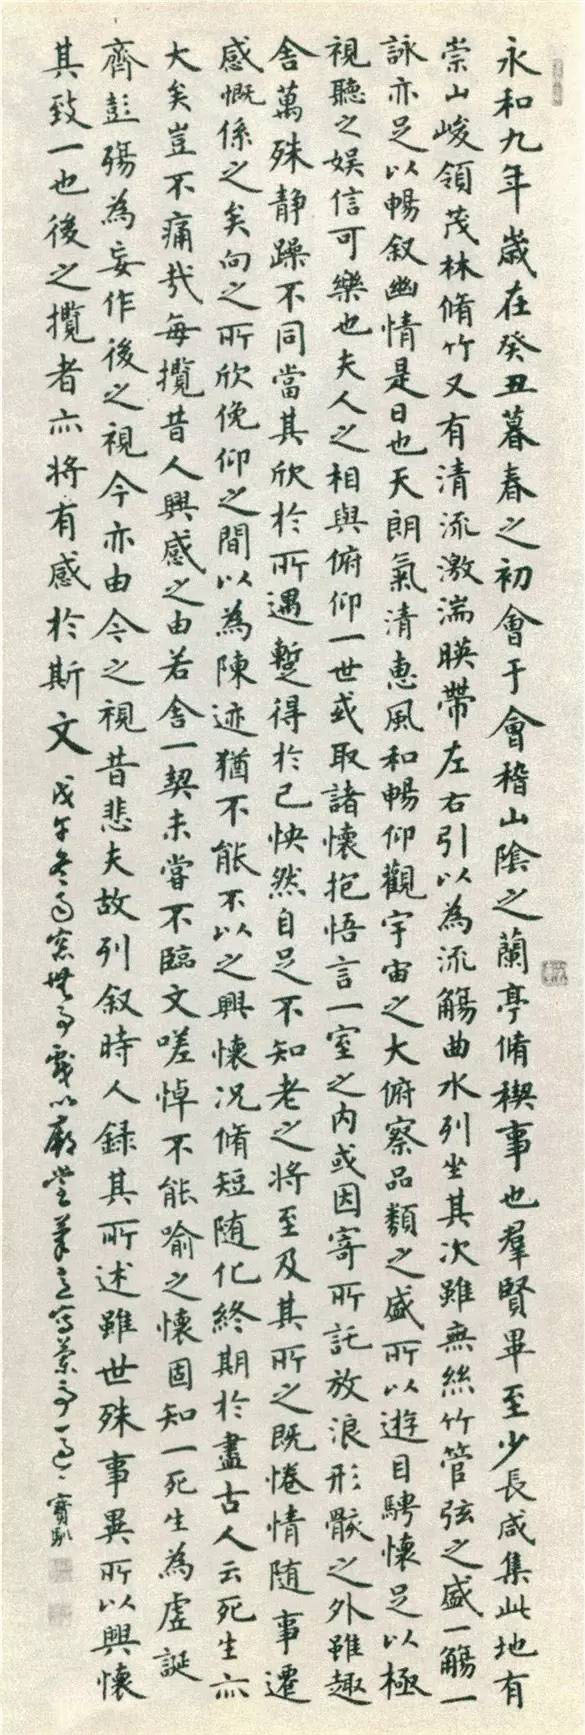 永和九年歲在癸丑暮春之初會于會稽山陰之蘭亭脩禊事也羣賢畢至少長咸集此地有
崇山峻領茂林脩竹又有清流激湍暎帶左右引以為流觴曲水列坐其次雖無絲竹管弦之盛一觴一
詠亦足以暢叙幽情是日也天朗氣清惠風和暢仰觀宇宙之大俯察品類之盛所以遊目騁懷足以極
視聽之娛信可樂也夫人之相與俯仰一世或取諸懷抱悟言一室之内或因寄所託放浪形骸之外雖趣
舍萬殊静躁不同當其欣於所遇蹔得於己怏然自足不知老之将至及其所之既惓情随事遷
感慨係之矣向之所欣俛仰之間以為陳迹猶不能不以之興懷況脩短随化終期於盡古人云死生亦
大矣豈不痛哉每攬昔人興感之由若合一契未嘗不臨文嗟悼不能喻之懷固知一死生為虚誕
齊彭殤為妄作後之視今亦由今之視昔悲夫故列叙時人録其所述雖世殊事異所以興懷
其致一也後之攬者亦将有感於斯文 戊午冬窓無事戲以廟堂筆意寫蘭亭一過 寶熙